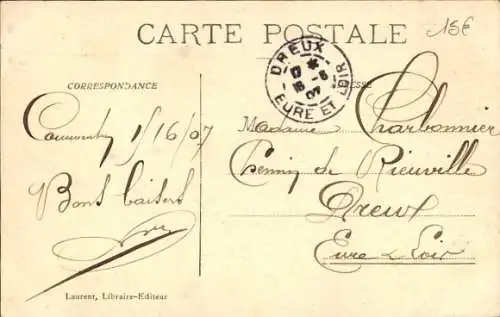 CARTE POSTALE
15€
DREUX
17 *
16 -6
07
EURE ET LOIR
CORRESPONDANCE
1/16/07
Bons baisers
Laurent, Libraire-Editeur
Madame Charbonnier
Chemin de Rieuville
Dreux
Eure & Loir